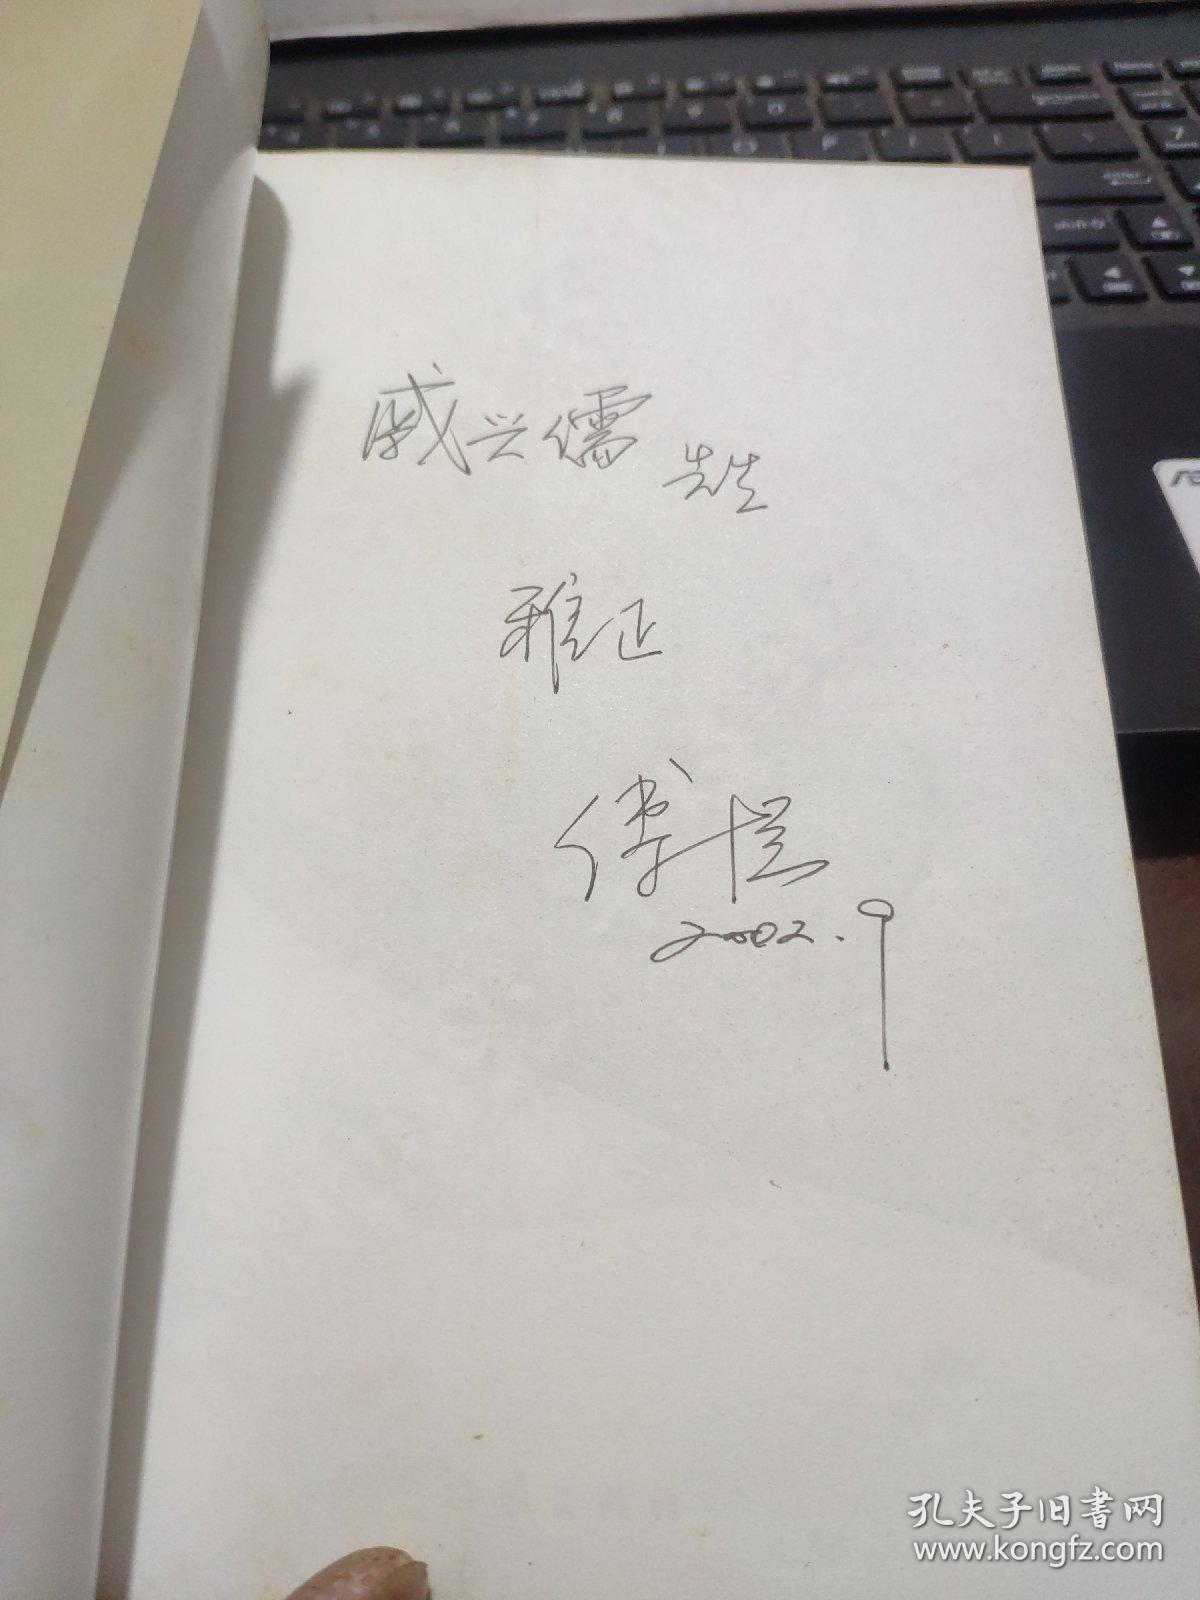 戚兴儒 先生
雅正
傅恒
2002.9
孔夫子旧书网
www.kongfz.com